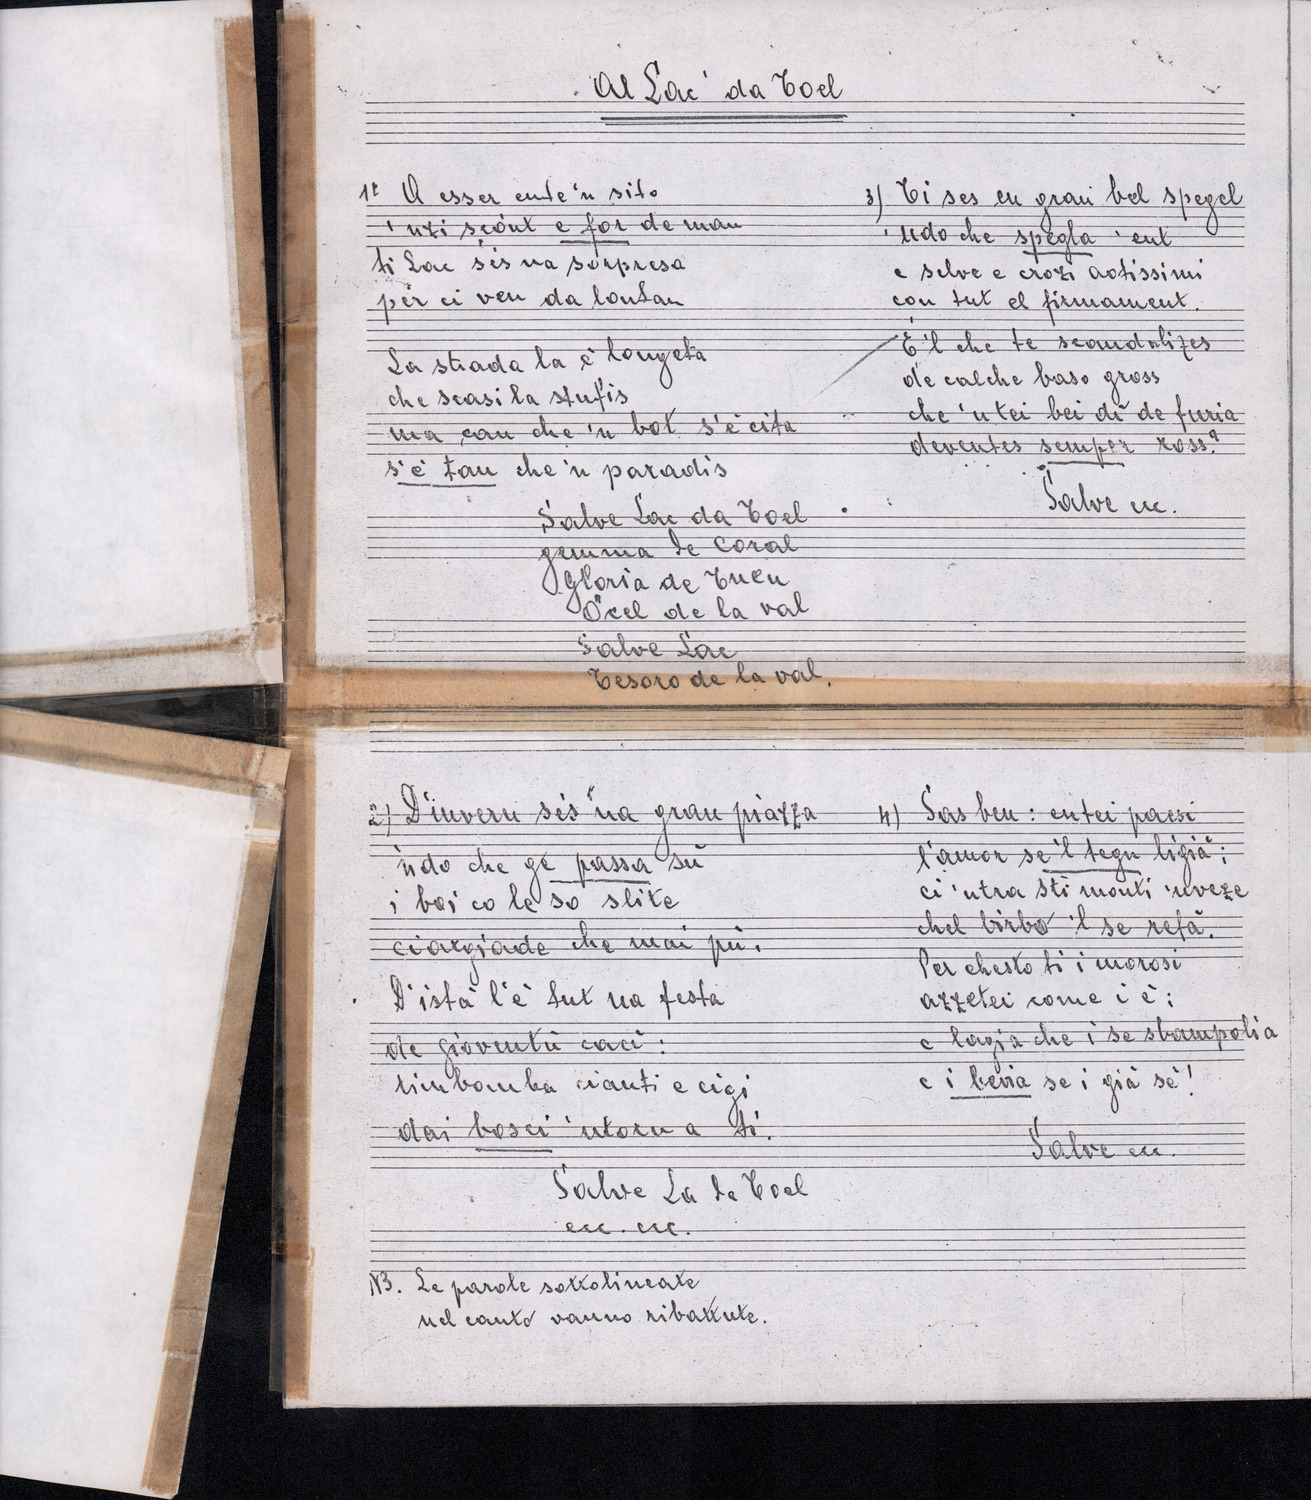 Al Lac' da Toel
1° A esser ente 'n sito
'nzi scónt e for de man
ti Lac sés na sorpresa
per ci ven da lontan
La strada la è longeta
che scasi la stufis
ma can che 'n bot s'è cita
s'è tan che 'n paradis
Salve Lac da Toel
gemma de coral
Gloria de Tuen
Öcel de la val
Salve Lac
Tesoro de la val.
2) D'invern sés 'na gran piazza
'ndo che ge passa sù
i boi co le so slite
ciargiade che mai pù.
D'istà l'è tut na festa
de gioventù cacì:
rimbomba cianti e cigi
dai bosci 'ntorn a ti.
Salve La de Toel
ecc. ecc.
3) Ti ses en gran bel spegel
'ndo che spegla 'ent
e selve e crozi aotissimi
con tut el firmament.
E'l che te scandalizes
de calche baso gross
che 'n tei bei dì de furia
deventes semper ross?
Salve ecc.
4) Sas ben: entei paesi
l'amor se'l tegn ligià;
ci 'ntra sti monti 'nveze
chel birbo 'l se refà.
Per chesto ti i morosi
azzetei come i è;
e lagia che i se sbampolia
e i bevia se i già sè!
Salve ecc.
NB. Le parole sottolineate
nel canto vanno ribattute.